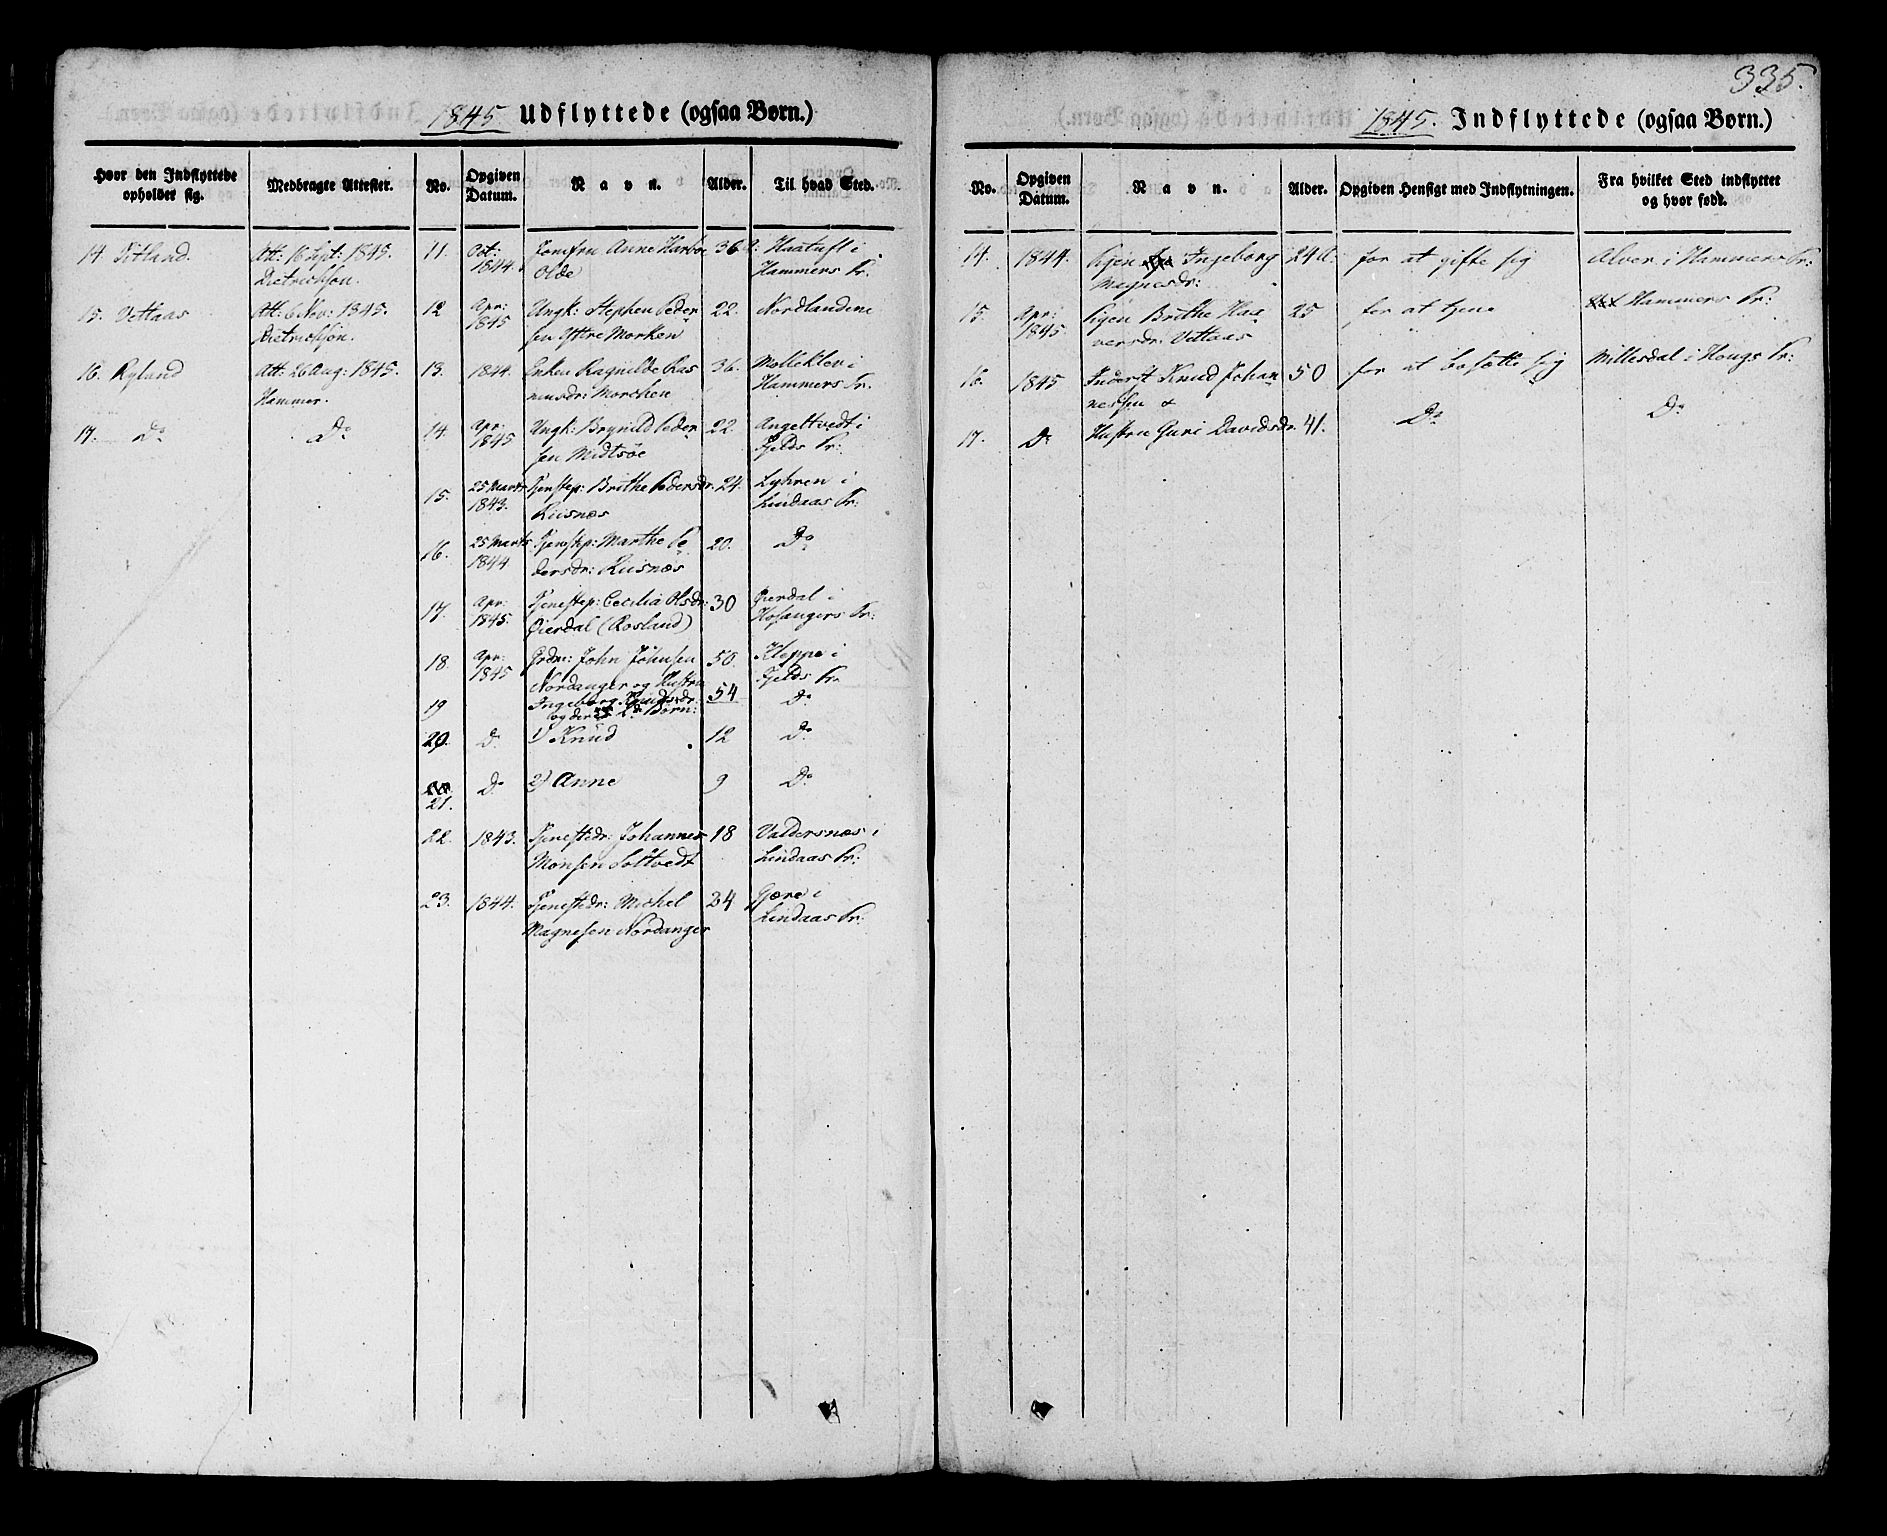 335.
1845 Udflyttede (ogsaa Børn.)
Hvor den Indflyttede opholder sig.
Medbragte Attester.
No.
Opgiven Datum.
Navn.
Alder.
Til hvad Sted.
14. Titland. Att: 16 Spt: 1845. Dietrichson.
15. Vettaas Att: 6 Nov: 1845. Dietrichson.
16. Ryland Att: 26 Aug: 1845. Hammer.
17. Do Do
11. Oct: 1844. Jomfru Anne Harboe 36
Olde Hammers Pr.
12 Apr: 1845 Ungk: Stephen Peder 22. Nordlandene
sen Yttre Morken
13. 1844. Enken Ragnilde Ras 36. Molleklev i
musdr: Morchen Hammers Pr.
14. Apr: 1845 Ungk: Brynild Peder 22. Angeltvedt i
sen Midtsøe Fjelds Pr:
15. 25 Marts 1843. Tjenstep: Brithe Pedersdr. 24. Lyhren i
Riisnæs Lindaas Pr:
16. 25 Marts 1844 Tjenstp: Marthe Pe 20. Do
dersdr: Riisnæs
17. Apr: 1845. Tjenestep: Cecilia Olsdr: 30 Øierdal i
Øierdal (Rosland) Hosangers Pr:
18. Apr: 1845 Grdm: John Johnsen 50. Kleppe i
Nordanger og Hustru Fjelds Pr.
19 Ingeborg Knudsdr: 54 Do
og deres 2de Børn:
20. Do 1) Knud 12 Do
21. Do 2) Anne 9 Do
22. 1843. Tjenestedr: Johannes 18 Valdersnæs i
Monsen Soltvedt Lindaas Pr:
23. 1844. Tjenestedr: Michel 34 Gjære i
Magnesen Nordanger Lindaas Pr:
1845. Indflyttede (ogsaa Børn.)
No.
Opgiven Datum.
Navn.
Alder.
Opgiven Hensigt med Indflytningen.
Fra hvilket Sted indflyttet og hvor født.
14. 1844. Pigen Ingeborg 24 A. for at gifte sig Alver i Hammers Pr:
Magnesdr:
15. Apr: 1845. Pigen Brithe Ha= 25 for at tjene Hammers Pr:
versdr: Vettaas
16. 1845 Inderst Knud Johan 50 for at bosætte sig Millesdal i Hougs Pr:
nessen &
17. Do Hustru Guri Davidsdr. 41. Do Do